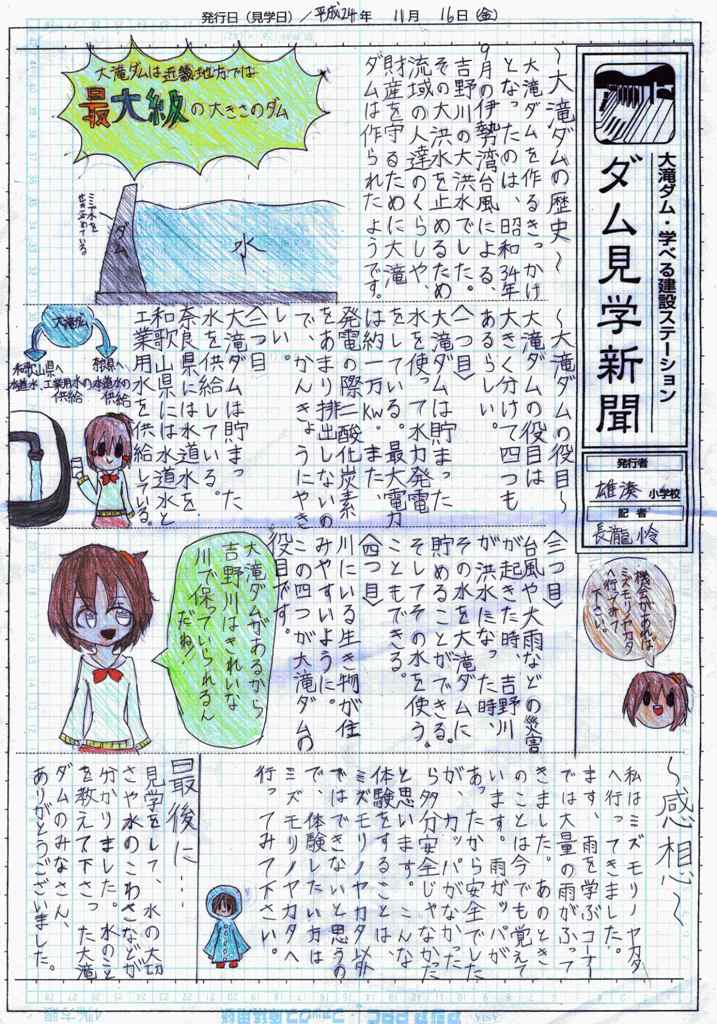 発行日（見学日）／平成24年 11月 16日（金）
大滝ダム・学べる建設ステーション
ダム見学新聞
発行者
雄湊 小学校
記者
長瀧 怜
〜大滝ダムの歴史〜
大滝ダムを作るきっかけ
となったのは、昭和34年
9月の伊勢湾台風による、
吉野川の大洪水でした。
その大洪水を止めるため
流域の人達のくらしや、
財産を守るために大滝
ダムは作られたようです。
大滝ダムは近畿地方では
最大級の大きさのダム
ダム
水
〜大滝ダムの役目〜
大滝ダムの役目は
大きく分けて四つも
あるらしい。
〈一つ目〉
大滝ダムは貯まった
水を使って水力発電
をしている。最大電力
は約一万KW。また、
発電の際二酸化炭素
をあまり排出しないの
で、かんきょうにやさ
しい。
〈二つ目〉
大滝ダムは貯まった
水を供給している。
奈良県には水道水を
和歌山県には水道水と
工業用水を供給している。
大滝ダム
奈良県へ
水道水の
供給
和歌山県へ
水道水、工業用水の
供給
〈三つ目〉
台風や大雨などの災害
が起きた時、吉野川
が洪水になった時、
その水を大滝ダムに
貯めることができる。
そしてその水を使う
こともできる。
〈四つ目〉
川にいる生き物が住
みやすいように。
この四つが大滝ダムの
役目です。
大滝ダムがあるから
吉野川はきれいな
川で保っていられるん
だね！
機会があれば
ミズモリノヤカタ
へ行ってみて
下さい。
〜感想〜
私はミズモリノヤカタ
へ行ってきました。
ます、雨を学ぶコーナー
では大量の雨がふって
きました。あのとき
のことは今でも覚えて
います。雨ガッパが
あったから安全でした
が、カッパがなかった
ら多分安全じゃなかった
と思います。こんな
体験をすることは、
ミズモリノヤカタ以外
ではできないと思うの
で、体験したい方は
ミズモリノヤカタへ
行ってみて下さい。
最後に…
見学をして、水の大切
さや水のこわさなどが
分かりました。水のこと
を教えて下さった大滝
ダムのみなさん、
ありがとうございました。